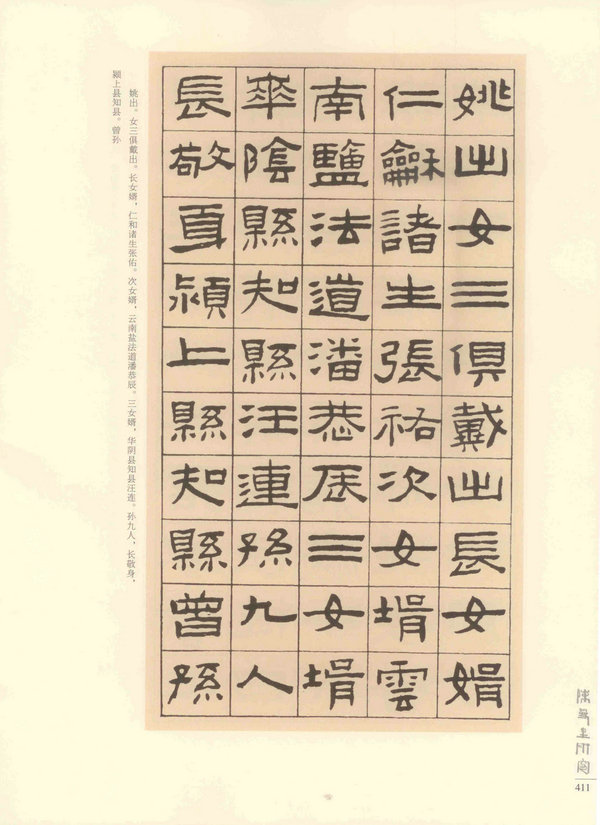 姚出女三俱戴出長女婿
仁龢諸生張祐次女壻雲
南鹽法道潘恭辰三女壻
華陰縣知縣汪連孫九人
長敬身潁上縣知縣曾孫
姚出。女三俱戴出。长女婿,仁和诸生张佑。次女婿,云南盐法道潘恭辰。三女婿,华阴县知县汪连。孙九人,长敬身,
颍上县知县。曾孙
411